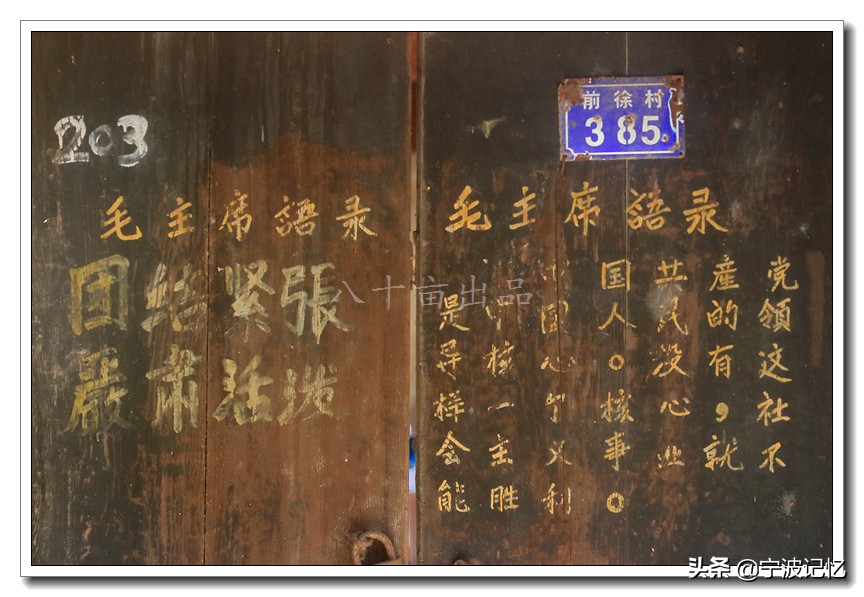 203
前徐村
385
毛主席語录
团结紧張
嚴肃活泼
毛主席語录
中国共產党
是中国人民的领
导核心。没有这
样一个核心，社
会主义事业就不
能胜利。
八十亩出品
头条 @宁波记忆